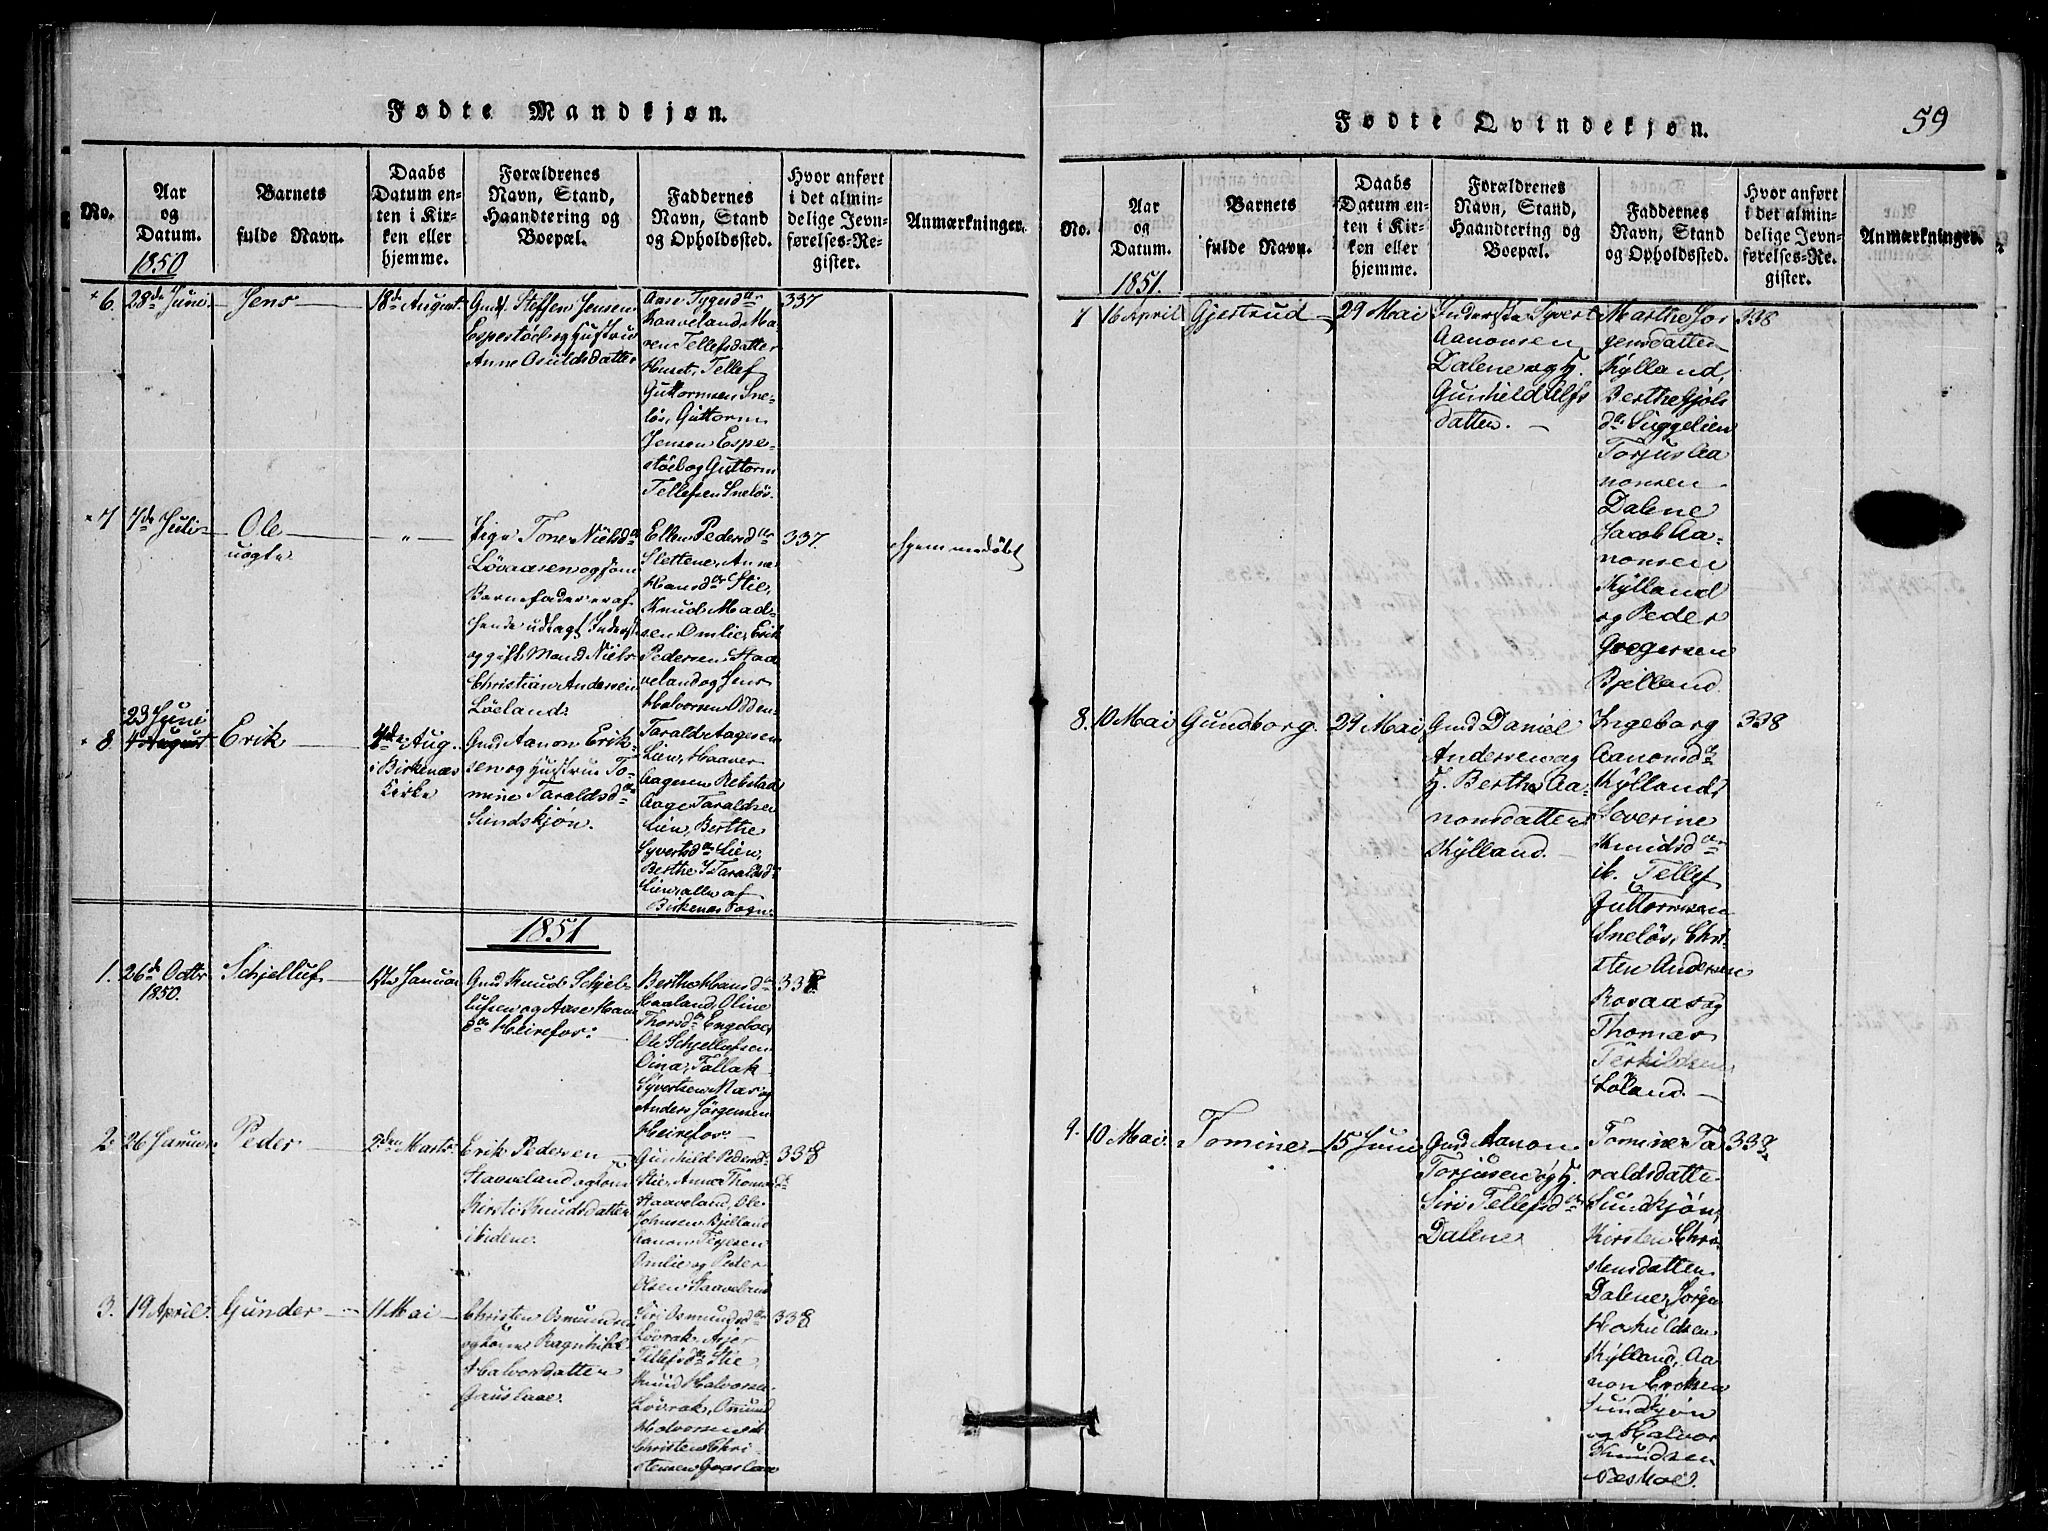 Fødte Mandkjøn.
No.
Aar
og
Datum.
1850
Barnets
fulde Navn.
Daabs
Datum en-
ten i Kir-
ken eller
hjemme.
Forældrenes
Navn, Stand,
Haandtering og
Boepæl.
Faddernes
Navn, Stand
og Opholdssted.
Hvor anført
i det almin-
delige Jevn-
førelses-Re-
gister.
Anmærkninger.
+ 6.
28de Juni
Jens
18de August
Gmd. Steffen Jensen
Espestøl og Hustru
Anne Osuldsdatter
Aase Tygesdr
Haaveland, Ma-
ren Tellefsdatter
Huset, Tellef
Guttormsen Sne-
løs, Guttorm
Jensen Espe-
støl og Guttorm
Tellefsen Sneløs.
337
+ 7
7de Juli
Ole
uægte
"
Pige Tone Nielsdr
Løvaasen og som
Barnefader er af
hende udlagt Inderst
og gift Mand Niels
Christian Andersen
Løeland.
Ellen Pedersdr
Slettene, Anne
Hansdr Stie,
Knud Mad-
sen Omlie, Erik
Pedersen Staa-
veland og Jens
Halvorsen Odden
337.
Hjemmedøbt
+ 8.
23 Juni
4 August
Erik
4de Aug.
i Birkenæs
Kirke
Gmd. Aanon Erik-
sen og Hustru To-
mine Taraldsdr
Sundskjøn.
Tarald Aagesen
Lien, Haaver
Aagesen Rebstad
Aage Taraldsen
Lien, Berthe
Syvertsdr Lien,
Berthe T Taraldsdr
Lien, alle af
Birkenæs Sogn.
1851
1.
26de Octbr
1850.
Schjelluf
1ste Januar
Gmd Knud Schjel-
lufsen og Aase Hans
dr Heirefos.
Berthe Hansdr
Haaland, Oline
Thorsdr Engeboe,
Ole Schjellufsen
Oina, Tallak
Syvertsen Mas og
Anders Jørgensen
Heirefos
338.
2.
26 Januar
Peder
2den Marts
Erik Pedersen
Staaveland og Kone
Kirsti Knudsdatter
ibidem.
Gunhild Pedersdr
Stie, Anne Thomasdr
Staaveland, Ole
Johnsen Bjelland
Aanon Terjesen
Omlie og Peder
Olsen Staaveland
338
3.
19 April
Gunder
11 Mai
Christen Osmundsen
og Kone Ragnhild
Halvorsdatter
Gauslaae.
Siri Osmundsdr
Løvrak, Asjer
Tellefsdr Stie
Knud Halvorsen
Løvrak, Omund
Halvorsen ib
Christen Chri-
stensen Gauslaae
338
Fødte Qvindekjøn.
59
No.
Aar
og
Datum.
1851.
Barnets
fulde Navn.
Daabs
Datum en-
ten i Kir-
ken eller
hjemme.
Forældrenes
Navn, Stand,
Haandtering og
Boepæl.
Faddernes
Navn, Stand
og Opholdssted.
Hvor anført
i det almin-
delige Jevn-
førelses-Re-
gister.
Anmærkninger.
7
16 April
Gjertrud
29 Mai
Inderste Syvert
Aanonsen
Dalene og H.
Gunhild Alfs
datter.
Marthe Jør
gensdatter
Kylland,
Berthe Gjøls
dr Suggelien
Torjus Aa
nonsen
Dalene
Jacob Aa-
nonsen
Kylland
og Peder
Gregersen
Bjelland.
338
8.
10 Mai
Gundborg.
29 Mai
Gmd Daniel
Andersen og
H. Berthe Aa-
nonsdatter
Kylland.
Ingeborg
Aanonsdr
Kylland,
Severine
Knudsdr
ib. Tellef
Guttormsen
Sneløs, Chri-
sten Andersen
Rosaas og
Thomas
Terkildsen
Løland.
338
9.
10 Mai
Tomine
15 Juni
Gmd Aanon
Torjusen og H.
Siri Tellefsdr
Dalene
Tomine Ta
raldsdatter
Sundkjøn,
Kirsten Chri-
stensdatter
Dalene, Jørgen
Hoskuldsen
Kylland, Aa
non Eriksen
Sundkjøn
og Halvor
Knudsen
Næs Moe.
338